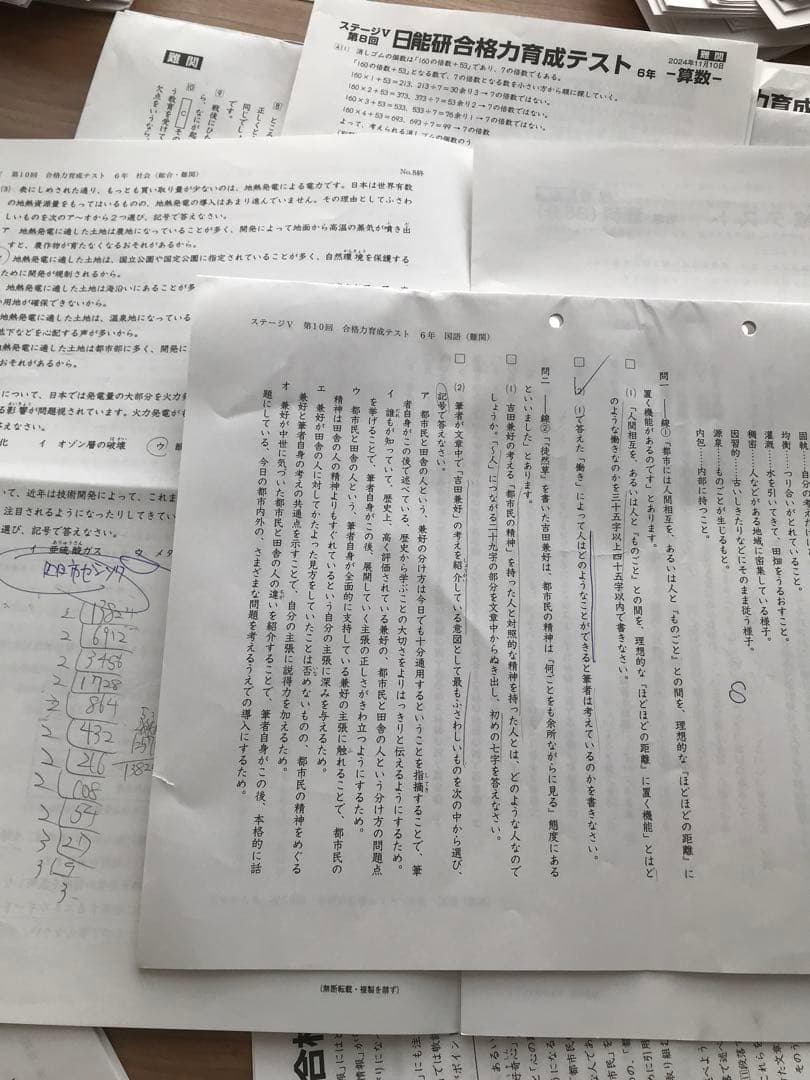 難関
⑧ ところ
正しくと
同じでし
です。
⑨ 戦後にひた
ら、なにが起
⑩ C その
う教育を受けて
欠点をいうなら
ステージⅤ
第8回
日能研合格力育成テスト
6年
難関
2024年11月10日
－算数－
4(1) 消しゴムの個数は「160の倍数＋53」であり、7の倍数でもある。
「160の倍数＋53」となる数で、7の倍数となる数を小さい方から順に探していく。
160×1＋53＝213, 213÷7＝30余り3→7の倍数ではない。
160×2＋53＝373, 373÷7＝53余り2→7の倍数ではない。
160×3＋53＝533, 533÷7＝76余り1→7の倍数ではない。
160×4＋53＝693, 693÷7＝99→7の倍数
よって、考えられる消しゴムの個数のう
力育成
第10回 合格力育成テスト 6年 社会（総合・難関）
No.8終
(3) 表にしめされた通り、もっとも買い取り量が少ないのは、地熱発電による電力です。日本は世界有数
の地熱資源量をもってはいるものの、地熱発電の導入はあまり進んでいません。その理由としてふさわ
しいものを次のア〜オから2つ選び、記号で答えなさい。
ア 地熱発電に適した土地は農地になっていることが多く、開発によって地面から高温の蒸気が噴き出
すと、農作物が育たなくなるおそれがあるから。
地熱発電に適した土地は、国立公園や国定公園に指定されていることが多く、自然環境を保護する
ために開発が規制されるから。
地熱発電に適した土地は海沿いにあることが多
用地が確保できないから。
地熱発電に適した土地は、温泉地になっている
下などを心配する声が多いから。
地熱発電に適した土地は都市部に多く、開発に
おそれがあるから。
について、日本では発電量の大部分を火力発
る影響が問題視されています。火力発電が
答えなさい。
化 イ オゾン層の破壊 ウ 酸
いて、近年は技術開発によって、これま
注目されるようになったりしてきてい
選び、記号で答えなさい。
イ 亜硫酸ガス ウ メタ
四日市ぜんそく
2 13824
2 6912
2 3456
2 1728
2 864
2 432
2 216
2 108
2 54
3 27
3 9
3
ステージⅤ 第10回 合格力育成テスト 6年 国語（難関）
均衡……つり合いがとれていること。
灌漑……水を引いてきて、田畑をうるおすこと。
稠密……人などがある地域に密集している様子。
因習的……古いしきたりなどにそのまま従う様子。
源泉……ものごとが生じるもと。
内包……内部に持つこと。
8
問一 ――線①「都市には人間相互を、あるいは人と『ものごと』との間を、理想的な『ほどほどの距離』に
置く機能があるのです」とあります。
(1) 「人間相互を、あるいは人と『ものごと』との間を、理想的な『ほどほどの距離』に置く機能」とはど
のような働きなのかを三十五字以上四十五字以内で書きなさい。
(2) (1)で答えた「働き」によって人はどのようなことができると筆者は考えているのかを書きなさい。
問二 ――線②「『徒然草』を書いた吉田兼好は、都市民の精神は『何ごとをも余所ながらに見る』態度にある
といいました」とあります。
(1) 吉田兼好の考える「都市民の精神」を持った人と対照的な精神を持った人とは、どのような人なので
しょうか。「〜人」につながる二十九字の部分を文章中からぬき出し、初めの七字を答えなさい。
(2) 筆者が文章中で「吉田兼好」の考えを紹介している意図として最もふさわしいものを次の中から選び、
記号で答えなさい。
ア 都市民と田舎の人という、兼好の分け方は今日でも十分通用するということを指摘することで、筆
者自身がこの後で述べている、歴史から学ぶことの大切さをよりはっきりと伝えるようにするため。
イ 誰もが知っていて、歴史上、高く評価されている兼好の、都市民と田舎の人という分け方の問題点
を挙げることで、筆者自身がこの後、展開していく主張の正しさがきわ立つようにするため。
ウ 都市民と田舎の人という、筆者自身が全面的に支持している兼好の主張に触れることで、都市民の
精神は田舎の人の精神よりもすぐれているという自分の主張に深みを与えるため。
エ 兼好が田舎の人に対してかたよった見方をしていたことは否めないものの、都市民の精神をめぐる
兼好と筆者自身の考えの共通点を示すことで、自分の主張に説得力を加えるため。
オ 兼好が中世に気づいた都市民と田舎の人の違いを紹介することで、筆者自身がこの後、本格的に話
題にしている、今日の都市内外の、さまざまな問題を考えるうえでの導入にするため。
（無断転載・複製を禁ず）
合格